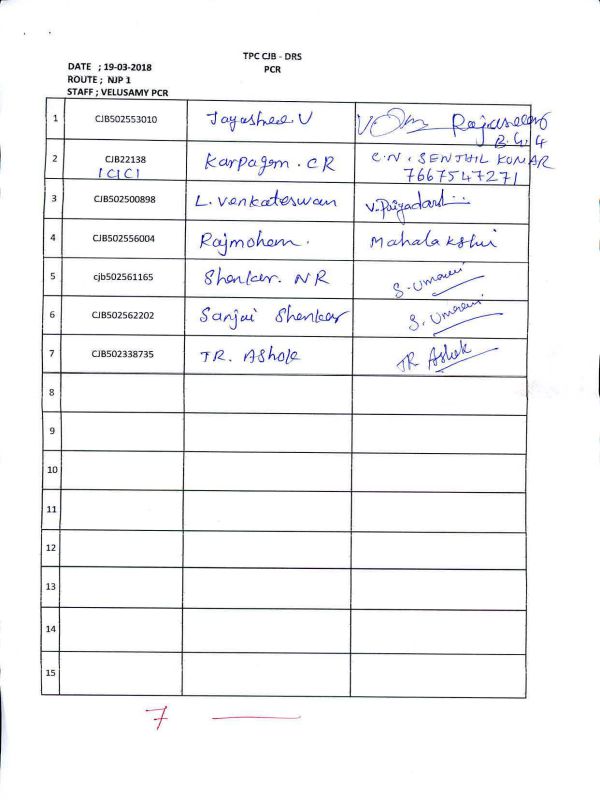 TPC CJB - DRS
PCR
DATE ; 19-03-2018
ROUTE ; NJP 1
STAFF ; VELUSAMY PCR
1 CJB502553010 Jayashee.V
B.G.4
2 CJB22138 Karpagam.CR C.N. SENTHIL KUMAR
ICICI 7667547271
3 CJB502500898 L. Venkateswan
4 CJB502556004 Rajmohem. Mahalakshmi
5 cjb502561165 Shenker. NR S. Umarani
6 CJB502562202 Sanjai Shenker S. Umarani
7 CJB502338735 TR. Ashok TR Ashok
8
9
10
11
12
13
14
15
7